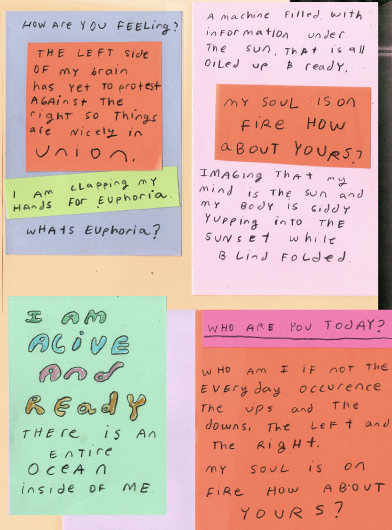 HOW ARE YOU FEELING?
THE LEFT SIDE
OF my brain
has yet to protest
AGAINST THE
right so things
are nicely in
UNION.
I AM CLAPPING MY
HANDS FOR EUPHORIA.
WHATS EUPHORIA?
A machine filled with
information under
The SUN. THAT is all
OILED UP & ready.
my SOUL IS ON
FIRE HOW
ABOUT YOURS?
IMAGING THAT my
mind is THE SUN and
my BODY is GIDDY
YUPPING INTO THE
SUNSET while
BLIND FOLDED.
I AM
ALIVE
And
REAdY
THERE is AN
ENTIRE
OCEAN
inside OF ME
WHO ARE YOU TODAY?
WHO AM I IF NOT THE
EVERYDAY OCCURENCE
The UPS and THE
downs. The LEFT and
The RIGHT.
my SOUL is on
FIRE HOW ABOUT
YOURS?